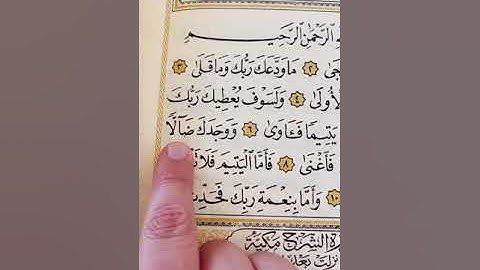 ٱلرَّحْمَٰنِ ٱلرَّحِيمِ
٢ مَا وَدَّعَكَ رَبُّكَ وَمَا قَلَىٰ ٣
ٱلْأُولَىٰ ٤ وَلَسَوْفَ يُعْطِيكَ رَبُّكَ
يَتِيمًا فَـَٔاوَىٰ ٦ وَوَجَدَكَ ضَآلًّا
فَأَغْنَىٰ ٨ فَأَمَّا ٱلْيَتِيمَ فَلَا
١٠ وَأَمَّا بِنِعْمَةِ رَبِّكَ فَحَدِّثْ
سُورَةُ الشَّرْحِ مَكِّيَّةٌ
نزلت بعد